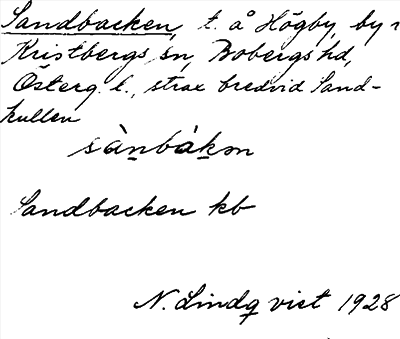 Sandbacken, t. å Högby, by i
Kristbergs sn, Bobergs hd,
Österg. l., strax bredvid Sand-
kullen
sànbákən
Sandbacken kb
N. Lindqvist 1928